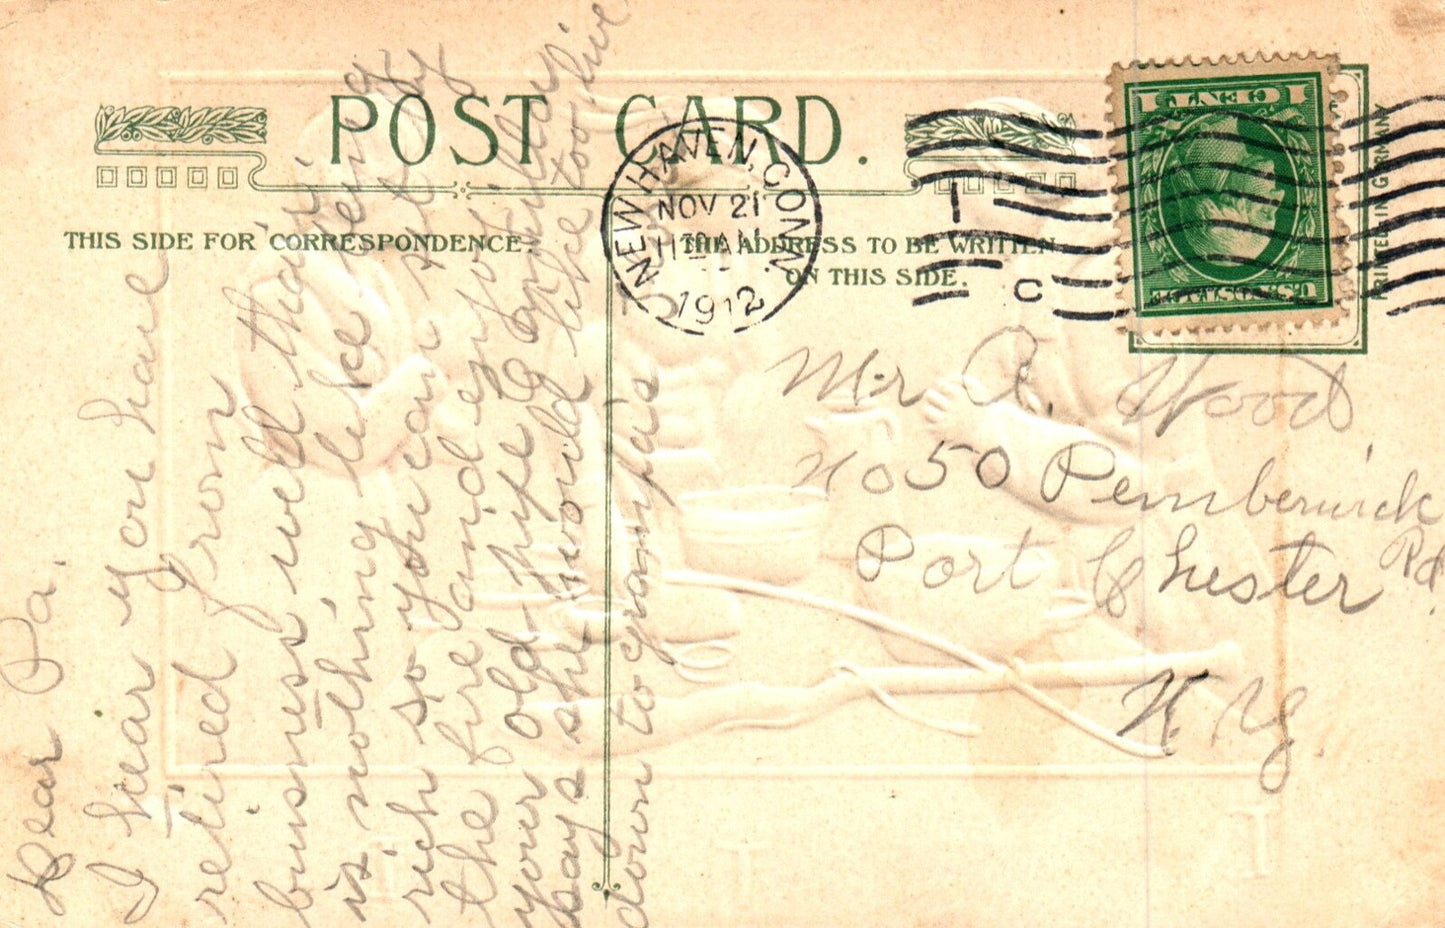 POST CARD.
THIS SIDE FOR CORRESPONDENCE.
THE ADDRESS TO BE WRITTEN
ON THIS SIDE.
NEW HAVEN, CONN.
NOV 21
11 AM
1912
C
U.S. POSTAGE
1 CENT 1
PRINTED IN GERMANY
Mr A. Wood
No 50 Pemberwick
Rd.
Port Chester
N Y.
Dear Pa.
I hear you have
retired from
busness well thair
is nothing like being
rich so you can sit by
the fire and enjoy
your old pipe
says she would like too live
down to granpa's